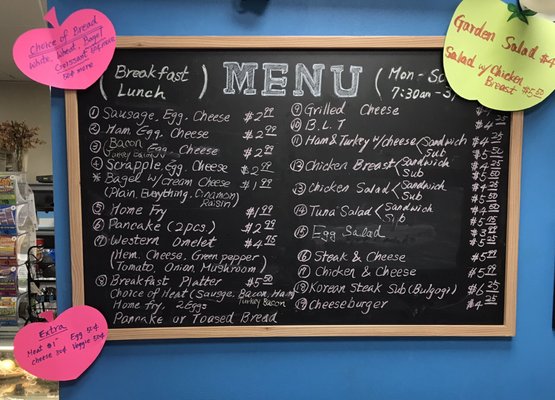 Choice of Bread
White, Wheat, Bagel
Croissant or 50¢ more
50¢ more
(Breakfast
Lunch)
MENU
(Mon - S
7:30am -
Garden Salad $4
Salad w/Chicken
Breast $5
① Sausage, Egg. Cheese $2.99
② Ham, Egg, Cheese $2.99
③ Bacon Egg. Cheese $2.99
Turkey Bacon
④ Scrapple, Egg. Cheese $2.99
* Bagel w/ cream Cheese $1.99
(Plain, Everything, Cinamon
Raisin)
⑤ Home Fry $1.99
⑥ Pancake (2pcs.) $2.99
⑦ Western Omelet $4.95
(Hem. Cheese, Green pepper)
(Tomato, Onion, Mushroom)
⑧ Breakfast Platter $5.50
Choice of Meat (Sausge, Bacon, Ham)
Turkey Bacon
Home fry, 2Eggs
Pancake or Toased Bread
⑨ Grilled Cheese
⑩ B.L.T
⑪ Ham & Turkey w/cheese Sandwich
Sub
⑫ Chicken Breast Sandwich
Sub
⑬ Chicken Salad Sandwich
Sub
⑭ Tuna Salad Sandwich
Sub
⑮ Egg Salad
⑯ Steak & Cheese $5.99
⑰ Chicken & Cheese $5.99
⑱ Korean Steak Sub (Bulgogi) $6.25
⑲ Cheeseburger $4.25
Extra
Meat $1 Egg 50¢
cheese 50¢ Veggie 50¢